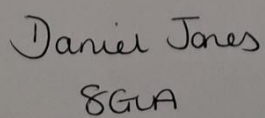 Daniel Jones
8GUA